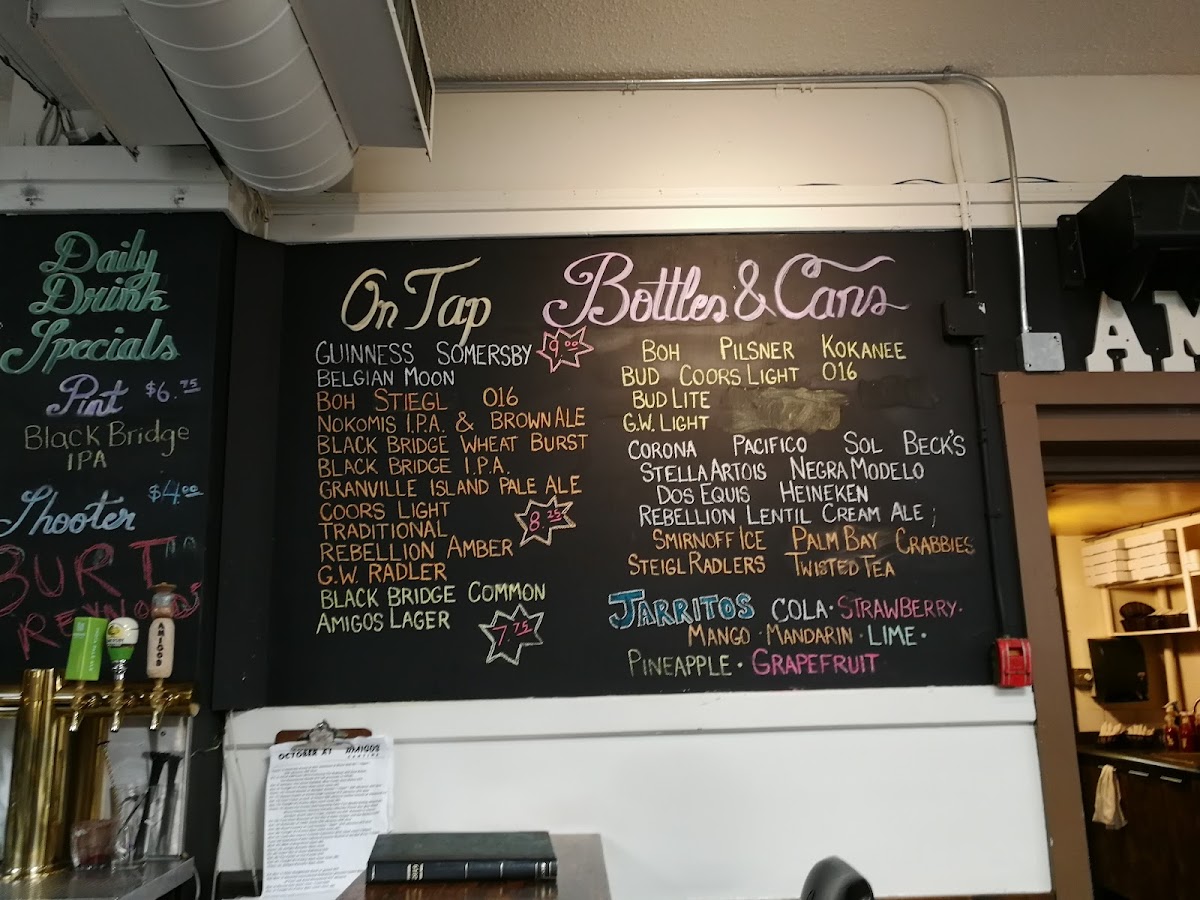 Daily
Drink
Specials
Pint $6.75
Black Bridge
IPA
Shooter $4.00
BURT
REYNOLDS
On Tap
GUINNESS SOMERSBY 9.00
BELGIAN MOON
BOH STIEGL 016
NOKOMIS I.P.A. & BROWN ALE
BLACK BRIDGE WHEAT BURST
BLACK BRIDGE I.P.A.
GRANVILLE ISLAND PALE ALE
COORS LIGHT
TRADITIONAL 8.25
REBELLION AMBER
G.W. RADLER
BLACK BRIDGE COMMON
AMIGOS LAGER 7.75
Bottles & Cans
BOH PILSNER KOKANEE
BUD COORS LIGHT 016
BUD LITE
G.W. LIGHT
CORONA PACIFICO SOL BECK'S
STELLA ARTOIS NEGRA MODELO
DOS EQUIS HEINEKEN
REBELLION LENTIL CREAM ALE ;
SMIRNOFF ICE PALM BAY CRABBIES
STEIGL RADLERS TWISTED TEA
JARRITOS COLA · STRAWBERRY ·
MANGO · MANDARIN · LIME ·
PINEAPPLE · GRAPEFRUIT
AM
AMIGOS
OCTOBER AT AMIGOS
CANTINA